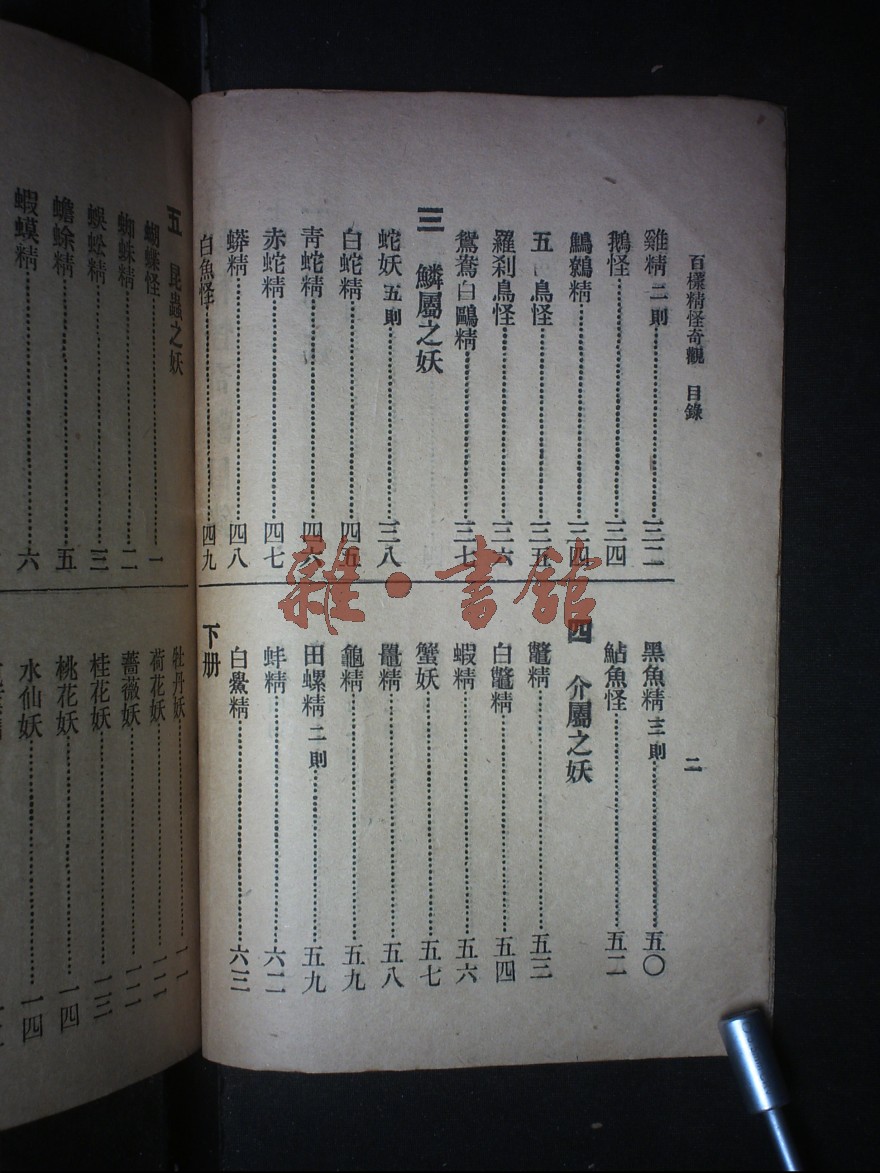 百樣精怪奇觀 目錄
二
雞精 二則 三二
鵝怪 三四
鷦鷯精 三四
五 鳥怪 三五
羅刹鳥怪 三六
鴛鴦白鷗精 三七
三 鱗屬之妖
蛇妖 五則 三八
白蛇精 四五
靑蛇精 四六
赤蛇精 四七
蟒精 四八
白魚怪 四九
黑魚精 三則 五〇
鮎魚怪 五二
四 介屬之妖
鼈精 五三
白鼈精 五四
蝦精 五六
蟹妖 五七
黿精 五八
龜精 五九
田螺精 二則 五九
蚌精 六二
白鱟精 六三
下册
五 昆蟲之妖
蝴蝶怪 一
蜘蛛精 二
蜈蚣精 三
蟾蜍精 五
蝦蟆精 六
牡丹妖 一一
荷花妖 一二
薔薇妖 一二
桂花妖 一三
桃花妖 一四
水仙妖 一四
雜·書館